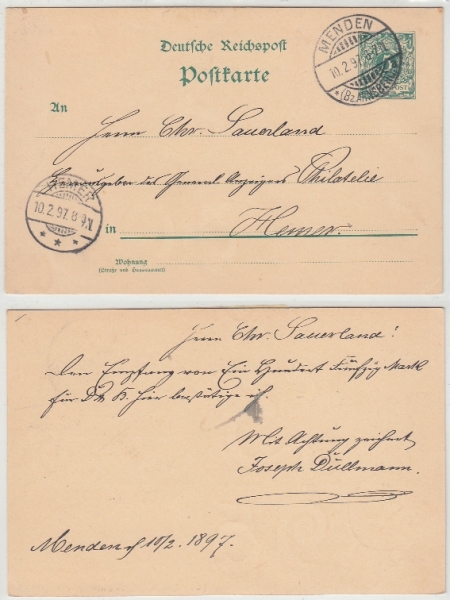 Deutsche Reichspost
Postkarte
MENDEN
10.2.97. 8-9 N.
*(Bz. ARNSBERG)
An
Herrn Chr. Sauerland
Herausgeber des General Anzeigers Philatelie
HEMER
10.2.97. 8-9 N.
in Hemer.
Wohnung
(Straße und Hausnummer)
Herrn Chr. Sauerland!
Den Empfang von Ein Hundert Fünfzig Mark
für hier bestätige ich.
Mit Achtung zeichnet
Joseph Düllmann.
Menden 10/2. 1897.